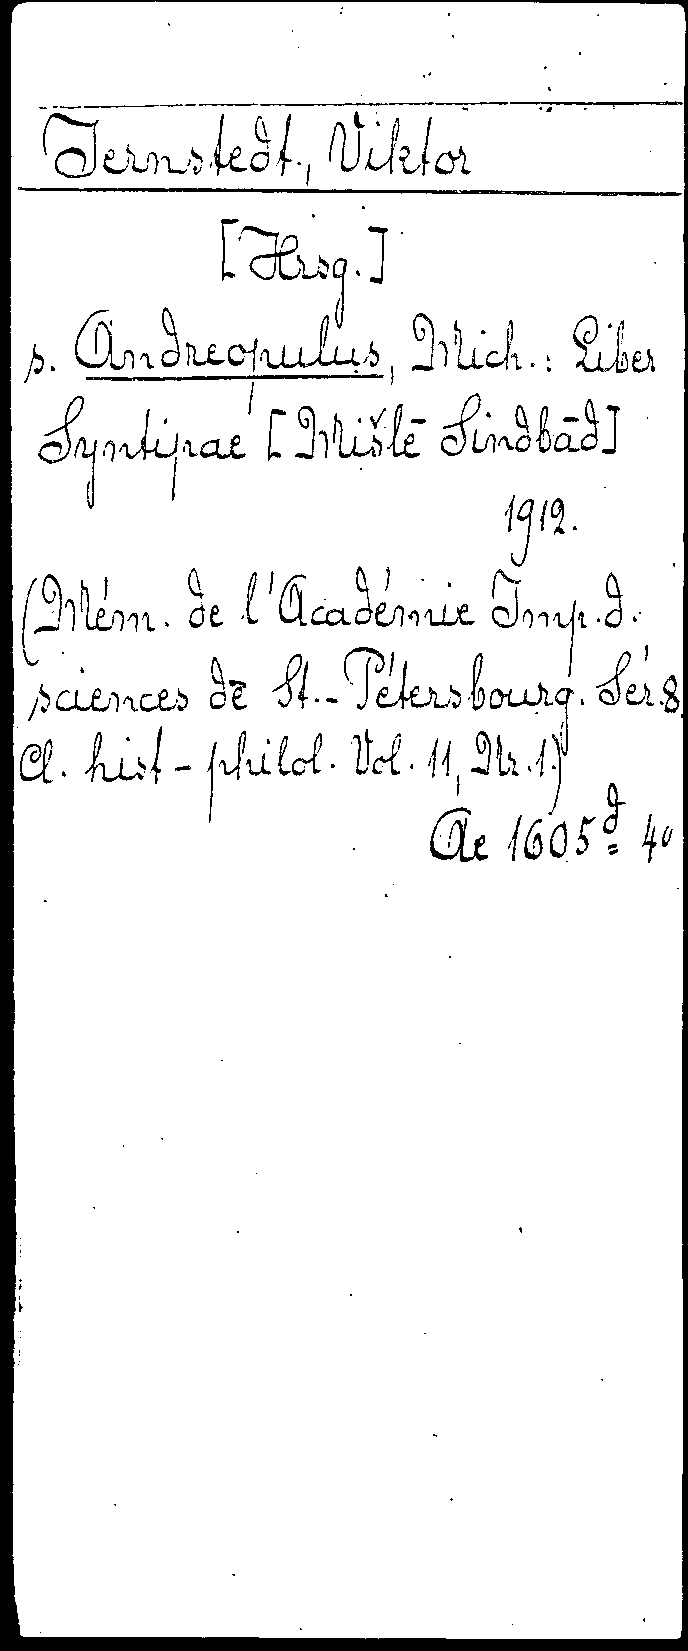 Jernstedt, Viktor
[Hrsg.]
s. Andreopulus, Mich.: Liber
Syntipae [Mišlē Sindbād]
1912.
(Mém. de l'Académie Imp. d.
sciences de St.-Pétersbourg. Sér. 8
Cl. hist-philol. Vol. 11, Nr. 1.)
Ae 1605 d = 4°